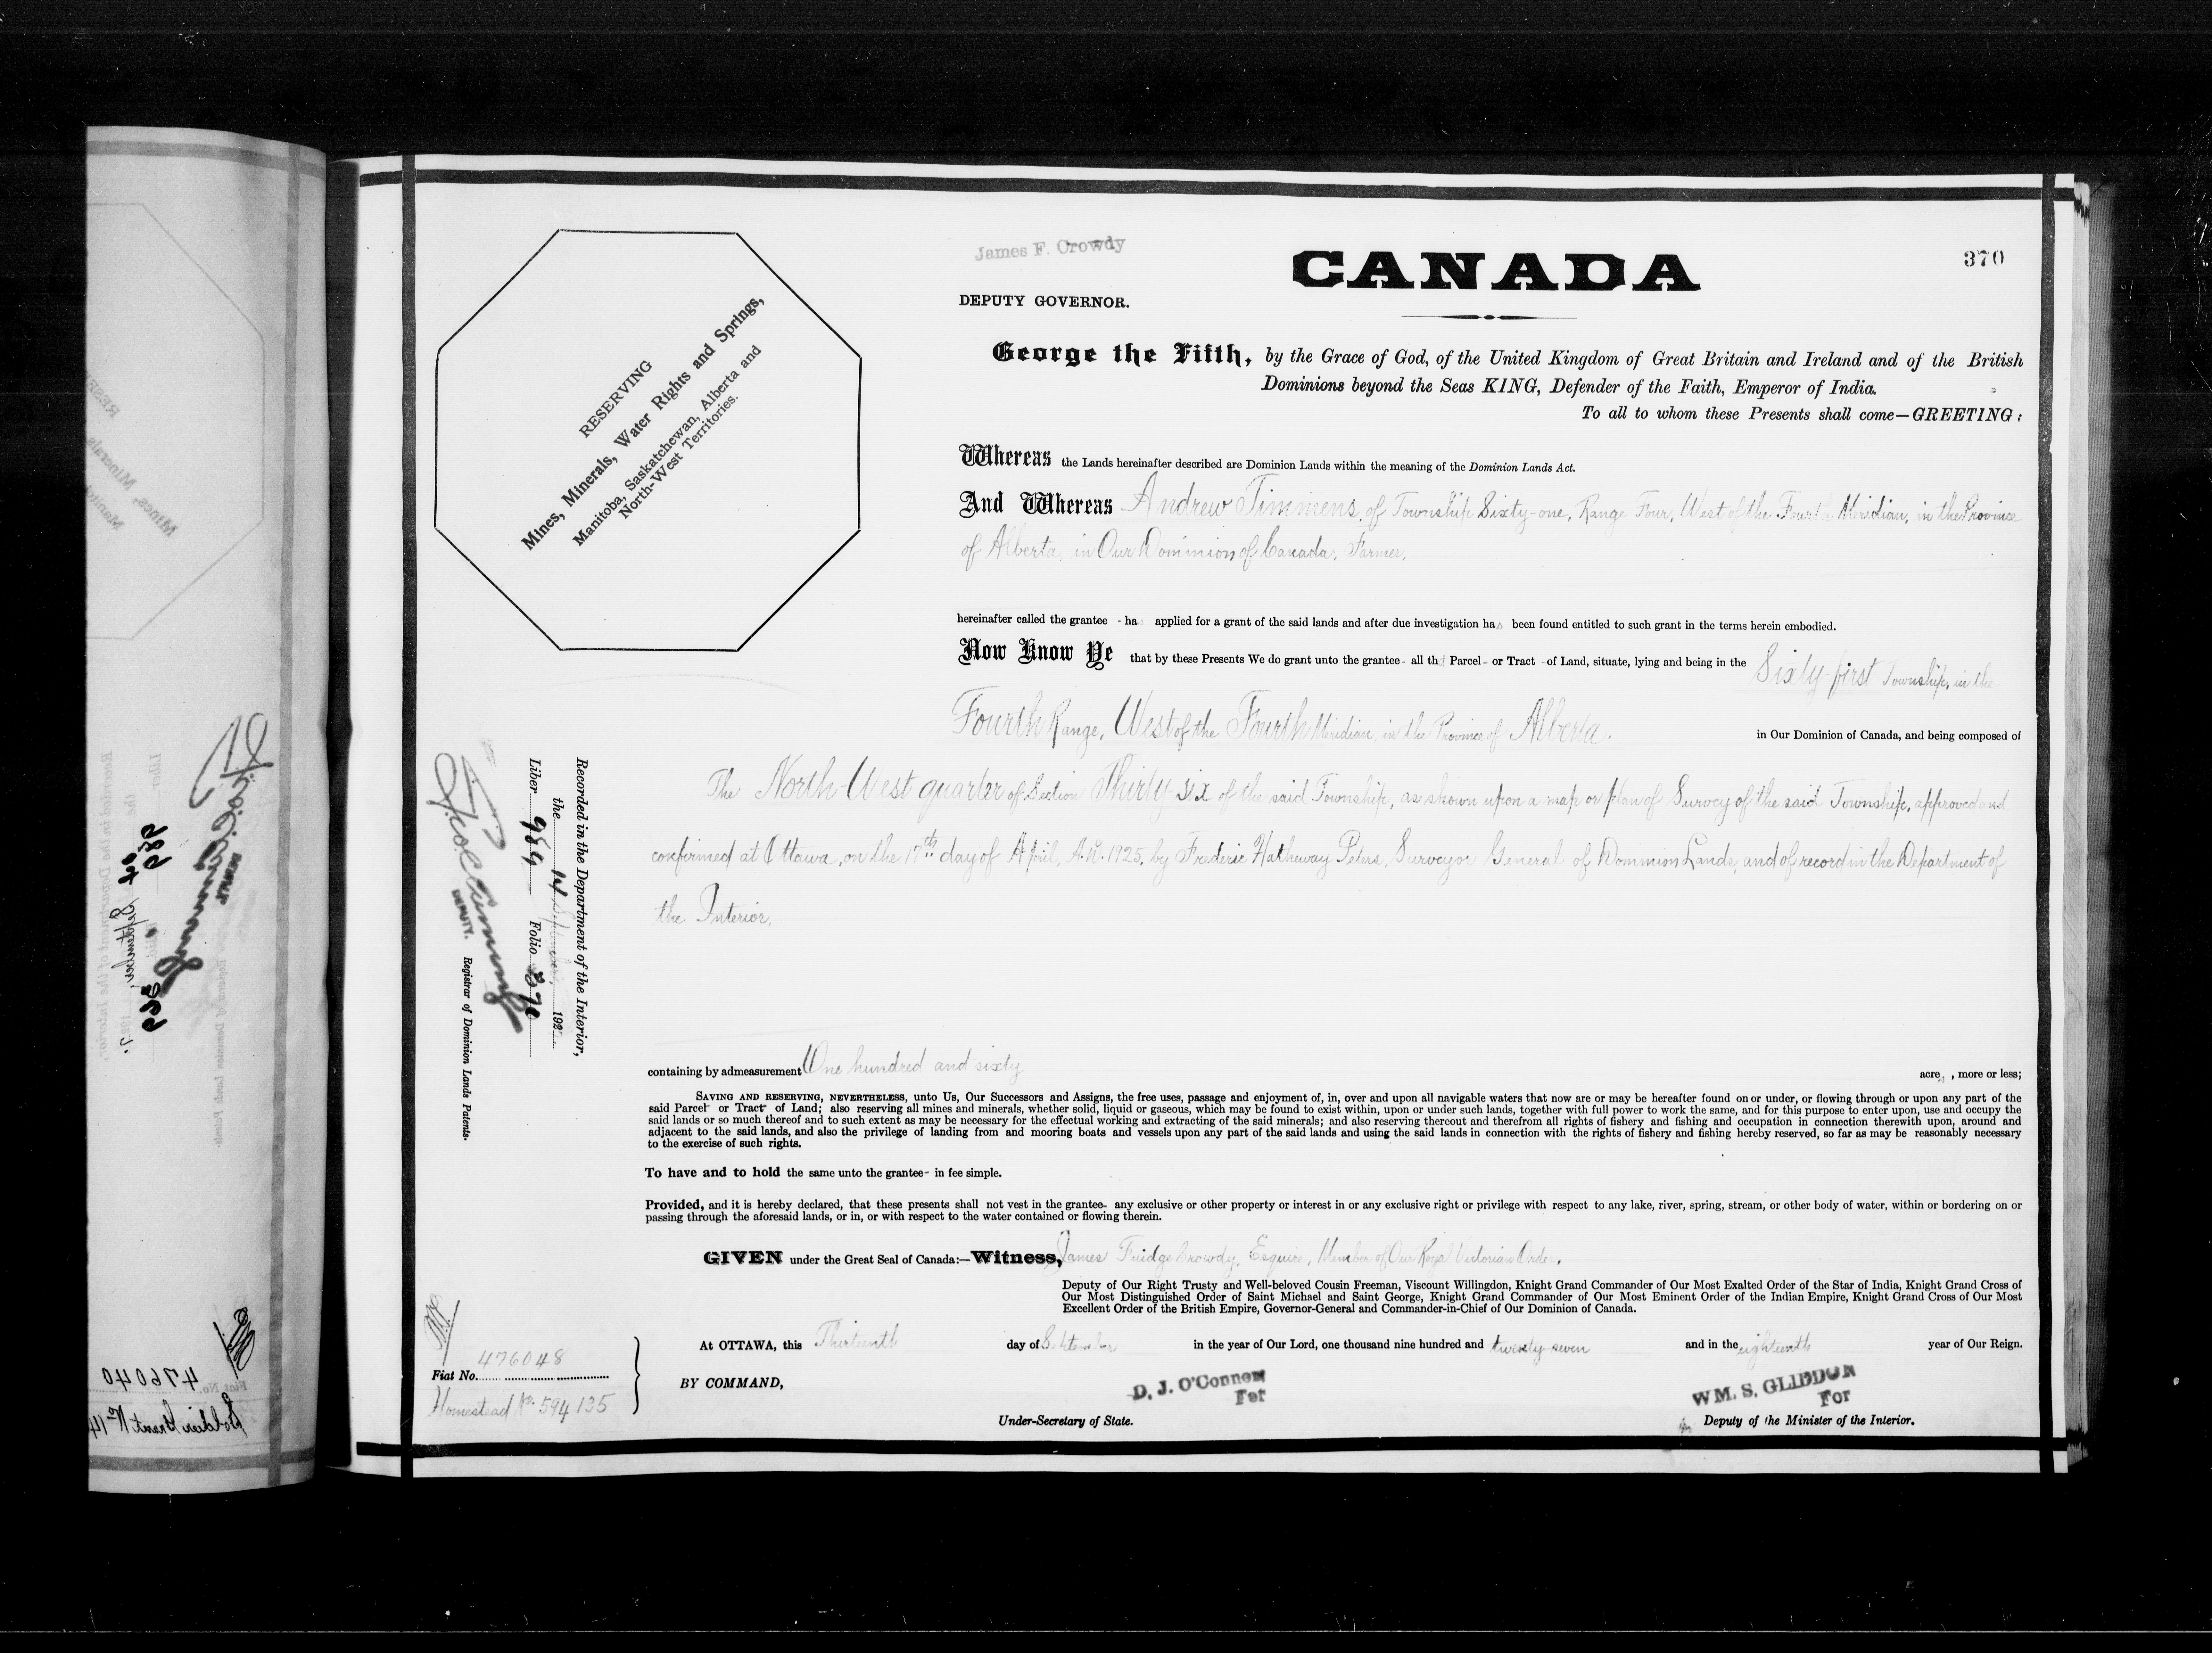 370
James F. Crowdy
CANADA
DEPUTY GOVERNOR.
George the Fifth, by the Grace of God, of the United Kingdom of Great Britain and Ireland and of the British
Dominions beyond the Seas KING, Defender of the Faith, Emperor of India.
To all to whom these Presents shall come—GREETING:
RESERVING
Mines, Minerals, Water Rights and Springs,
Manitoba, Saskatchewan, Alberta and
North-West Territories.
Whereas the Lands hereinafter described are Dominion Lands within the meaning of the Dominion Lands Act.
And Whereas Andrew Timmens, of Township Sixty-one, Range Four, West of the Fourth Meridian, in the Province
of Alberta, in Our Dominion of Canada, Farmer,
hereinafter called the grantee - has applied for a grant of the said lands and after due investigation has been found entitled to such grant in the terms herein embodied.
Now Know Ye that by these Presents We do grant unto the grantee - all th Parcel - or Tract - of Land, situate, lying and being in the Sixty-first Township, in the
Fourth Range, West of the Fourth Meridian, in the Province of Alberta. in Our Dominion of Canada, and being composed of
The North West quarter of Section Thirty six of the said Township, as shown upon a map or plan of Survey of the said Township, approved and
confirmed at Ottawa, on the 17th day of April, A.D. 1925, by Frederic Hatheway Peters, Surveyor General of Dominion Lands, and of record in the Department of
the Interior,
Recorded in the Department of the Interior,
the 14 September, 192
Liber 989 Folio 370
DEPUTY. Registrar of Dominion Lands Patents.
containing by admeasurement One hundred and sixty acres, more or less;
SAVING AND RESERVING, NEVERTHELESS, unto Us, Our Successors and Assigns, the free uses, passage and enjoyment of, in, over and upon all navigable waters that now are or may be hereafter found on or under, or flowing through or upon any part of the
said Parcel- or Tract- of Land; also reserving all mines and minerals, whether solid, liquid or gaseous, which may be found to exist within, upon or under such lands, together with full power to work the same, and for this purpose to enter upon, use and occupy the
said lands or so much thereof and to such extent as may be necessary for the effectual working and extracting of the said minerals; and also reserving thereout and therefrom all rights of fishery and fishing and occupation in connection therewith upon, around and
adjacent to the said lands, and also the privilege of landing from and mooring boats and vessels upon any part of the said lands and using the said lands in connection with the rights of fishery and fishing hereby reserved, so far as may be reasonably necessary
to the exercise of such rights.
To have and to hold the same unto the grantee- in fee simple.
Provided, and it is hereby declared, that these presents shall not vest in the grantee- any exclusive or other property or interest in or any exclusive right or privilege with respect to any lake, river, spring, stream, or other body of water, within or bordering on or
passing through the aforesaid lands, or in, or with respect to the water contained or flowing therein.
GIVEN under the Great Seal of Canada:—Witness, James Fuidge Crowdy, Esquire, Member of Our Royal Victorian Order,
Deputy of Our Right Trusty and Well-beloved Cousin Freeman, Viscount Willingdon, Knight Grand Commander of Our Most Exalted Order of the Star of India, Knight Grand Cross of
Our Most Distinguished Order of Saint Michael and Saint George, Knight Grand Commander of Our Most Eminent Order of the Indian Empire, Knight Grand Cross of Our Most
Excellent Order of the British Empire, Governor-General and Commander-in-Chief of Our Dominion of Canada.
At OTTAWA, this Thirteenth day of September in the year of Our Lord, one thousand nine hundred and twenty-seven and in the eighteenth year of Our Reign.
BY COMMAND,
D. J. O'Connor
For
Under-Secretary of State.
WM. S. GLIDDON
For
Deputy of the Minister of the Interior.
Fiat No. 476048
Homestead No. 594135